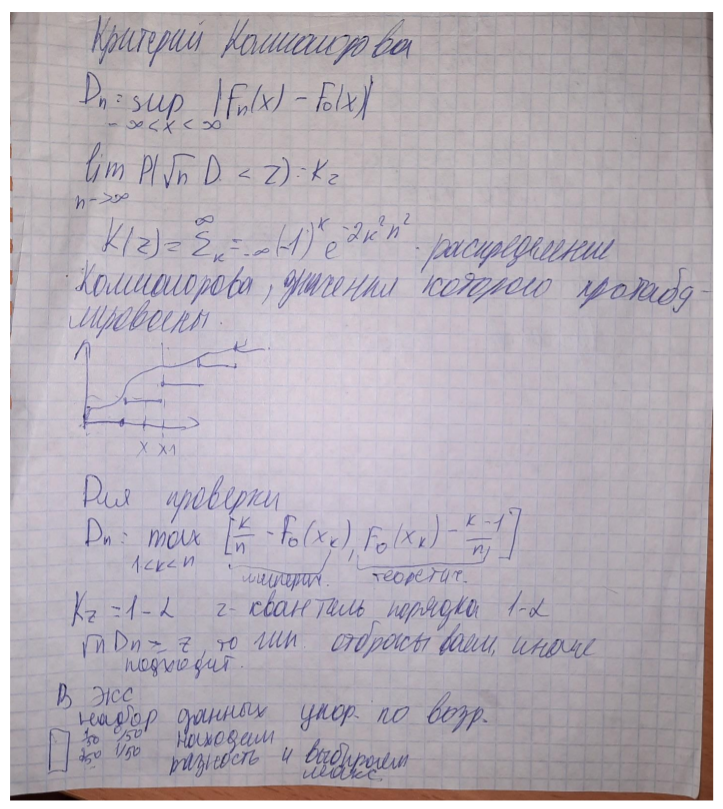 Критерий Колмогорова
Dn = sup |Fn(x) - F0(x)|
-∞<x<∞
lim P(√n D < z) = Kz
n->∞
K(z) = Σ∞k=-∞ (-1)^k e^-2k²n² - распределение
Колмогорова, значения которого протабу-
лированы.
x x1
Для проверки
Dn = max [k/n - F0(xk), F0(xk) - (k-1)/n]
1<k<n
теоретич.
Kz = 1-α z-квантиль порядка 1-α
√n Dn ≥ z, то гип. отбрасываем, иначе
подходит.
В экс
надбор данных упор. по возр.
1/50 0/50 находим
2/50 1/50 разность и выбираем
макс.